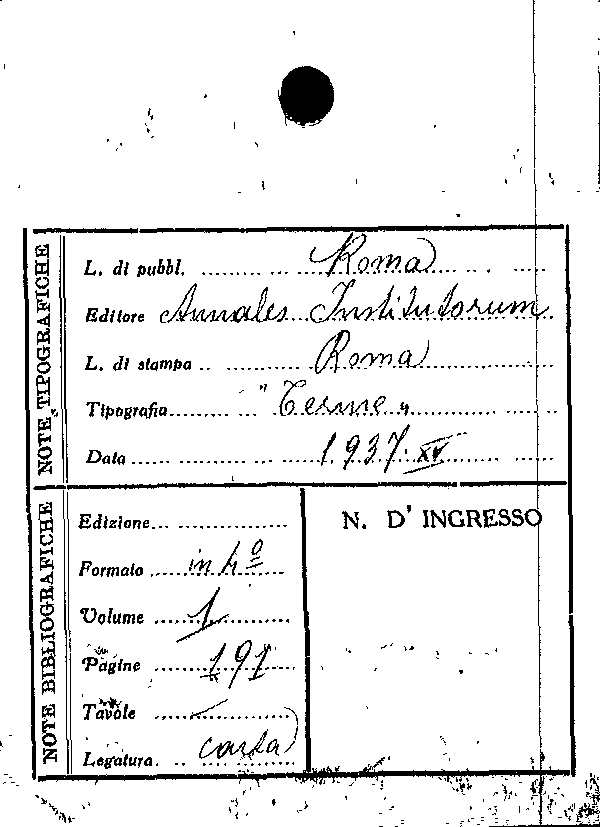 NOTE TIPOGRAFICHE
L. di pubbl. Roma
Editore Annales Institutorum
L. di stampa Roma
Tipografia "Terme"
Data 1937 XV
NOTE BIBLIOGRAFICHE
Edizione
Formato in 4º
Volume 1
Pagine 191
Tavole –
Legatura carta
N. D' INGRESSO